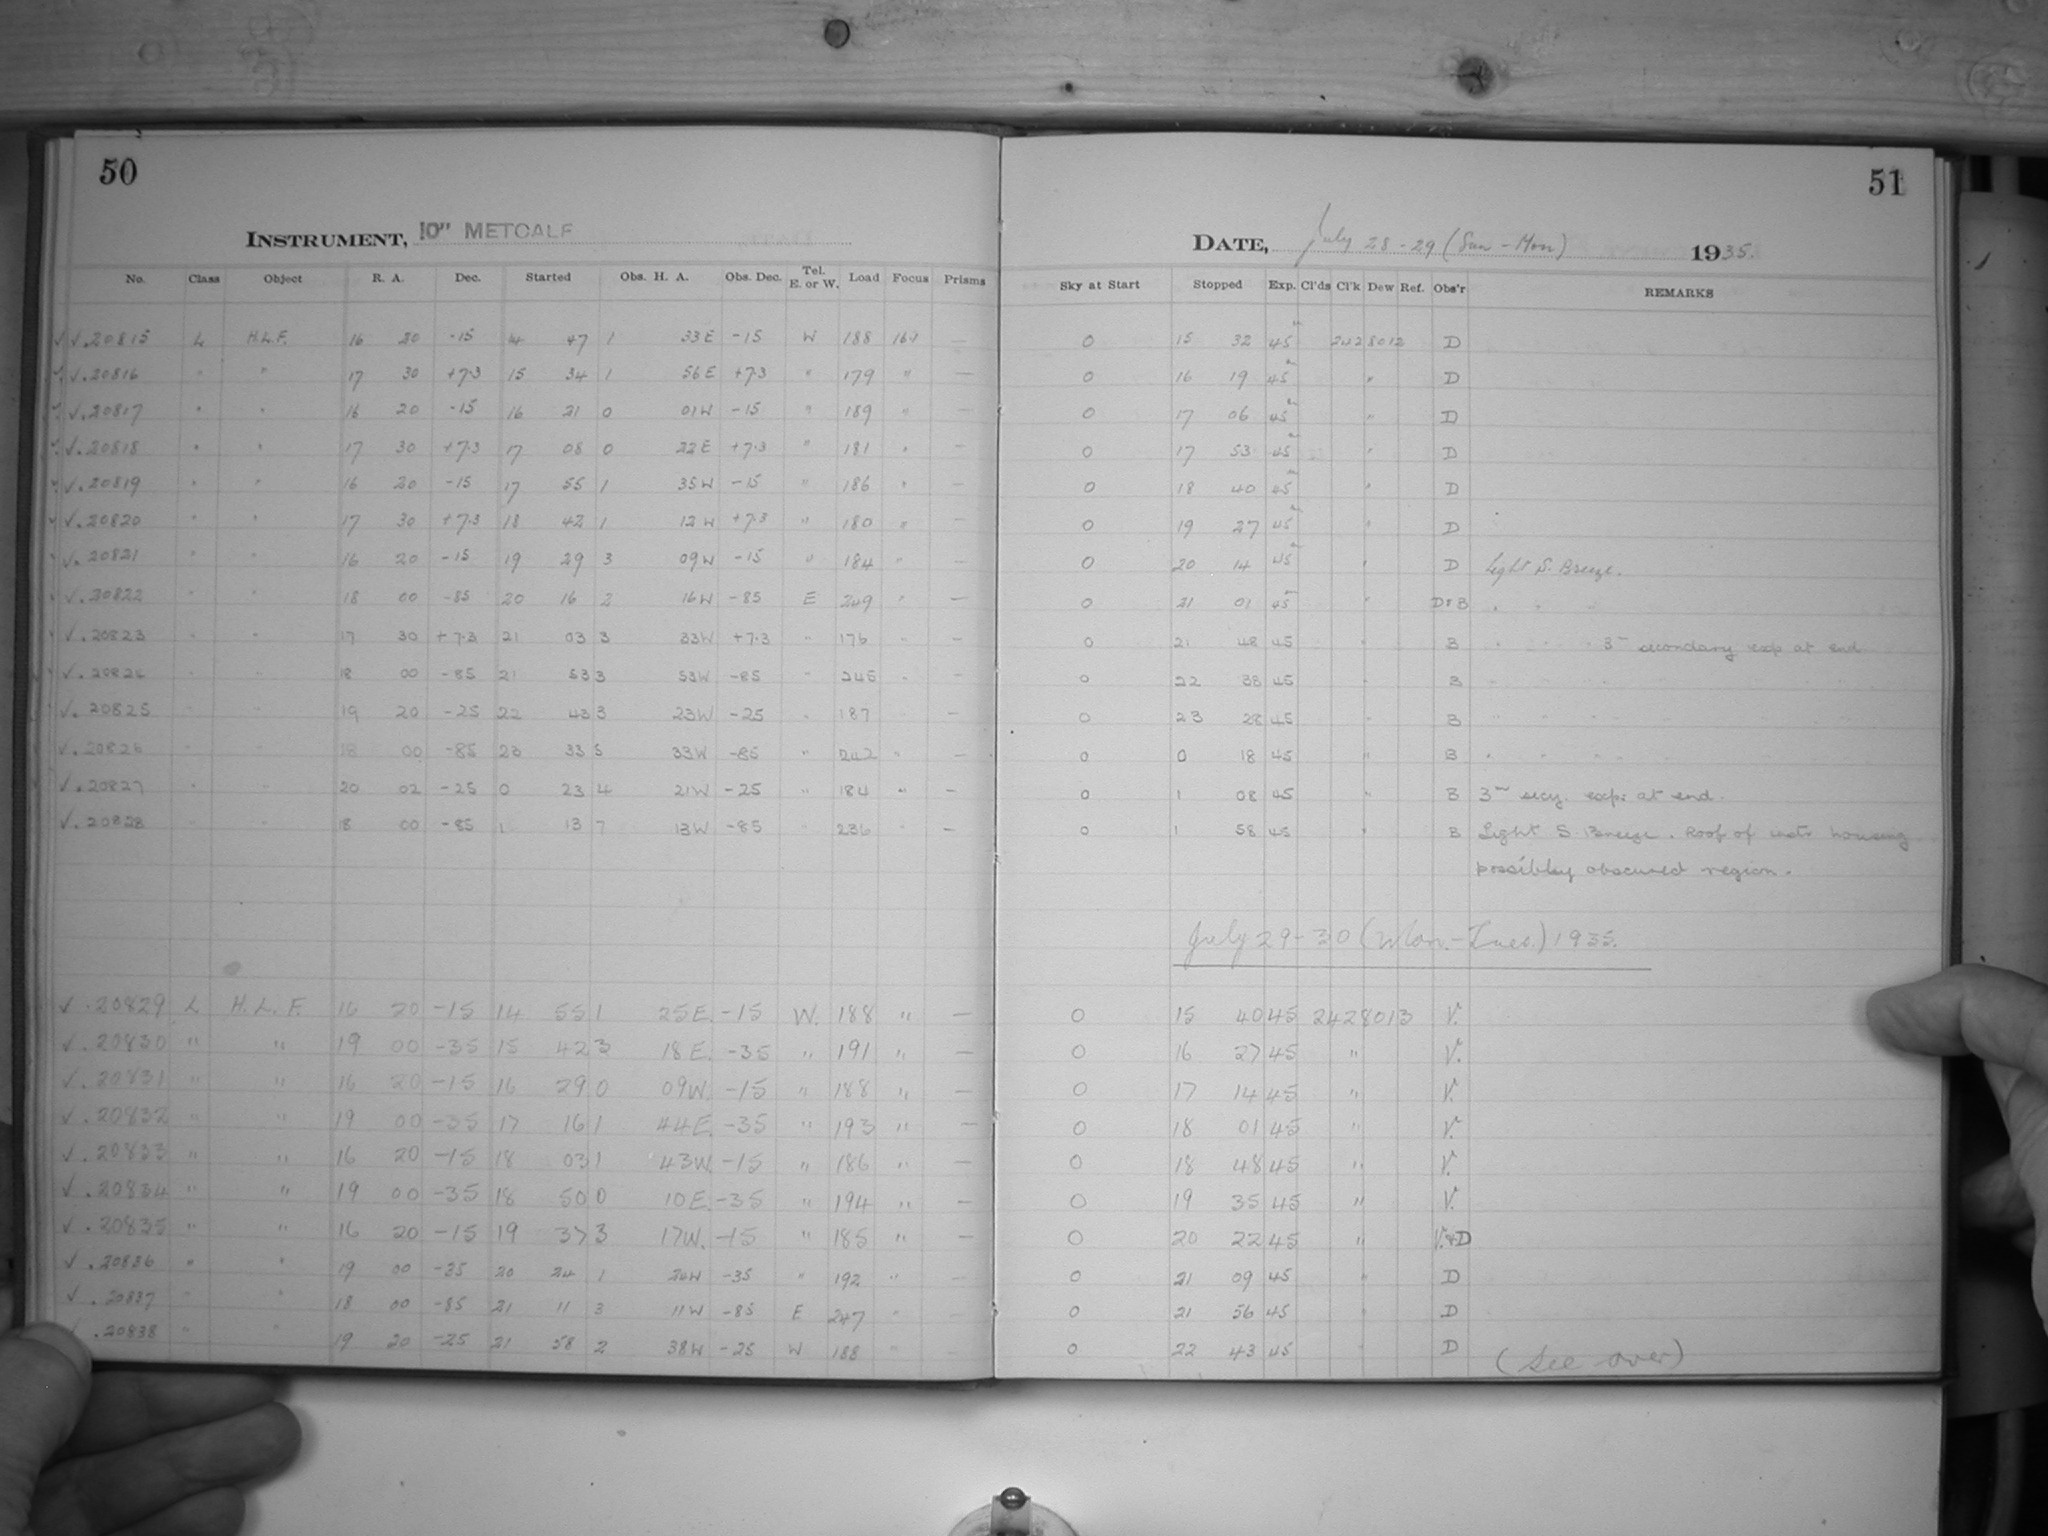 50
51
INSTRUMENT, 10" METCALF
DATE, July 28-29 (Sun - Mon) 1935.
No. Class Object R. A. Dec. Started Obs. H. A. Obs. Dec. Tel. E. or W. Load Focus Prisms Sky at Start Stopped Exp. Cl'ds Cl'k Dew Ref. Obs'r REMARKS
√ √.20815 L H.L.F. 16 20 -15 14 47 1 33E -15 W 188 — 0 15 32 45m 2428012 D
√ √.20816 " " 17 30 +7.3 15 34 1 56E +7.3 " 179 " — 0 16 19 45m " D
√ √.20817 " " 16 20 -15 16 21 0 01W -15 " 189 " — 0 17 06 45m " D
√ √.20818 " " 17 30 +7.3 17 08 0 22E +7.3 " 181 " — 0 17 53 45m " D
√ √.20819 " " 16 20 -15 17 55 1 35W -15 " 186 " — 0 18 40 45m " D
√ √.20820 " " 17 30 +7.3 18 42 1 12W +7.3 " 180 " — 0 19 27 45m " D
√.20821 " " 16 20 -15 19 29 3 09W -15 " 184 " — 0 20 14 45m " D Light S. Breeze.
√.20822 " " 18 00 -85 20 16 2 16W -85 E 249 " — 0 21 01 45m " D&B " " "
√.20823 " " 17 30 +7.3 21 03 3 33W +7.3 " 176 " — 0 21 48 45 " B " " " 3m secondary exp at end
√.20824 " " 18 00 -85 21 53 3 53W -85 " 245 " — 0 22 38 45 " B " " " "
√.20825 " " 19 20 -25 22 43 3 23W -25 " 187 " — 0 23 28 45 " B " " " "
√.20826 " " 18 00 -85 23 33 5 33W -85 " 242 " — 0 0 18 45 " B " " " "
√.20827 " " 20 02 -25 0 23 4 21W -25 " 184 " — 0 1 08 45 " B 3m secy. exp: at end.
√.20828 " " 18 00 -85 1 13 7 13W -85 " 236 " — 0 1 58 45 " B Light S Breeze. Roof of instr housing
possibly obscured region.
July 29-30 (Mon.-Tues.) 1935.
√.20829 L H.L.F. 16 20 -15 14 55 1 25E. -15 W. 188 " — 0 15 40 45 2428013 V.
√.20830 " " 19 00 -35 15 42 3 18E. -35 " 191 " — 0 16 27 45 " V.
√.20831 " " 16 20 -15 16 29 0 09W. -15 " 188 " — 0 17 14 45 " V.
√.20832 " " 19 00 -35 17 16 1 44E. -35 " 193 " — 0 18 01 45 " V.
√.20833 " " 16 20 -15 18 03 1 43W. -15 " 186 " — 0 18 48 45 " V.
√.20834 " " 19 00 -35 18 50 0 10E. -35 " 194 " — 0 19 35 45 " V.
√.20835 " " 16 20 -15 19 37 3 17W. -15 " 185 " — 0 20 22 45 " V.&D
√.20836 " " 19 00 -35 20 24 1 24W -35 " 192 " — 0 21 09 45 " D
√.20837 " " 18 00 -85 21 11 3 11W -85 E 247 " — 0 21 56 45 " D
√.20838 " " 19 20 -25 21 58 2 38W -25 W 188 " — 0 22 43 45 " D
(See over)